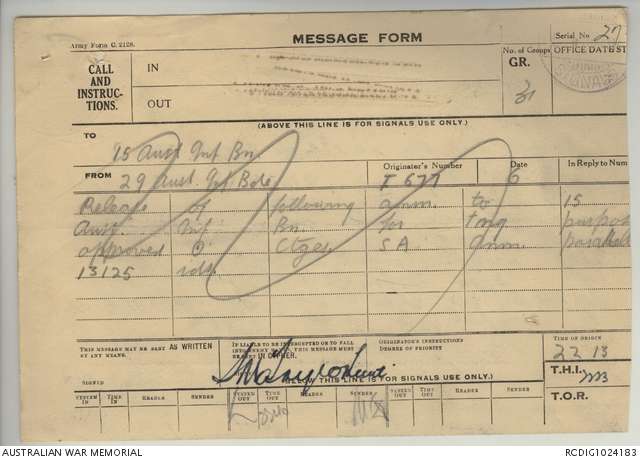 Army Form C. 2128.
MESSAGE FORM
Serial No 27
CALL AND INSTRUC-TIONS.
IN
OUT
No. of Groups
GR.
OFFICE DATE ST
SIGNAL
(ABOVE THIS LINE IS FOR SIGNALS USE ONLY.)
TO
15 Aust Inf Bn
FROM
29 Aust Inf Bde
Originator's Number
T 677
Date
6
In Reply to Num
Release of following amm. to 15
Aust Inf Bn for tng purpos
approved O Ctges SA amm.
13125 rds
THIS MESSAGE MAY BE SENT AS WRITTEN BY ANY MEANS.
IF LIABLE TO BE INTERCEPTED OR TO FALL INTO ENEMY HANDS, THIS MESSAGE MUST BE SENT IN CIPHER.
ORIGINATOR'S INSTRUCTIONS
DEGREE OF PRIORITY
TIME OF ORIGIN
22 13
SIGNED
(BELOW THIS LINE IS FOR SIGNALS USE ONLY.)
T.H.I.
T.O.R.
SYSTEM IN
TIME IN
READER
SENDER
SYSTEM OUT
TIME OUT
READER
SENDER
SYSTEM OUT
TIME OUT
READER
SENDER
AUSTRALIAN WAR MEMORIAL
RCDIG1024183